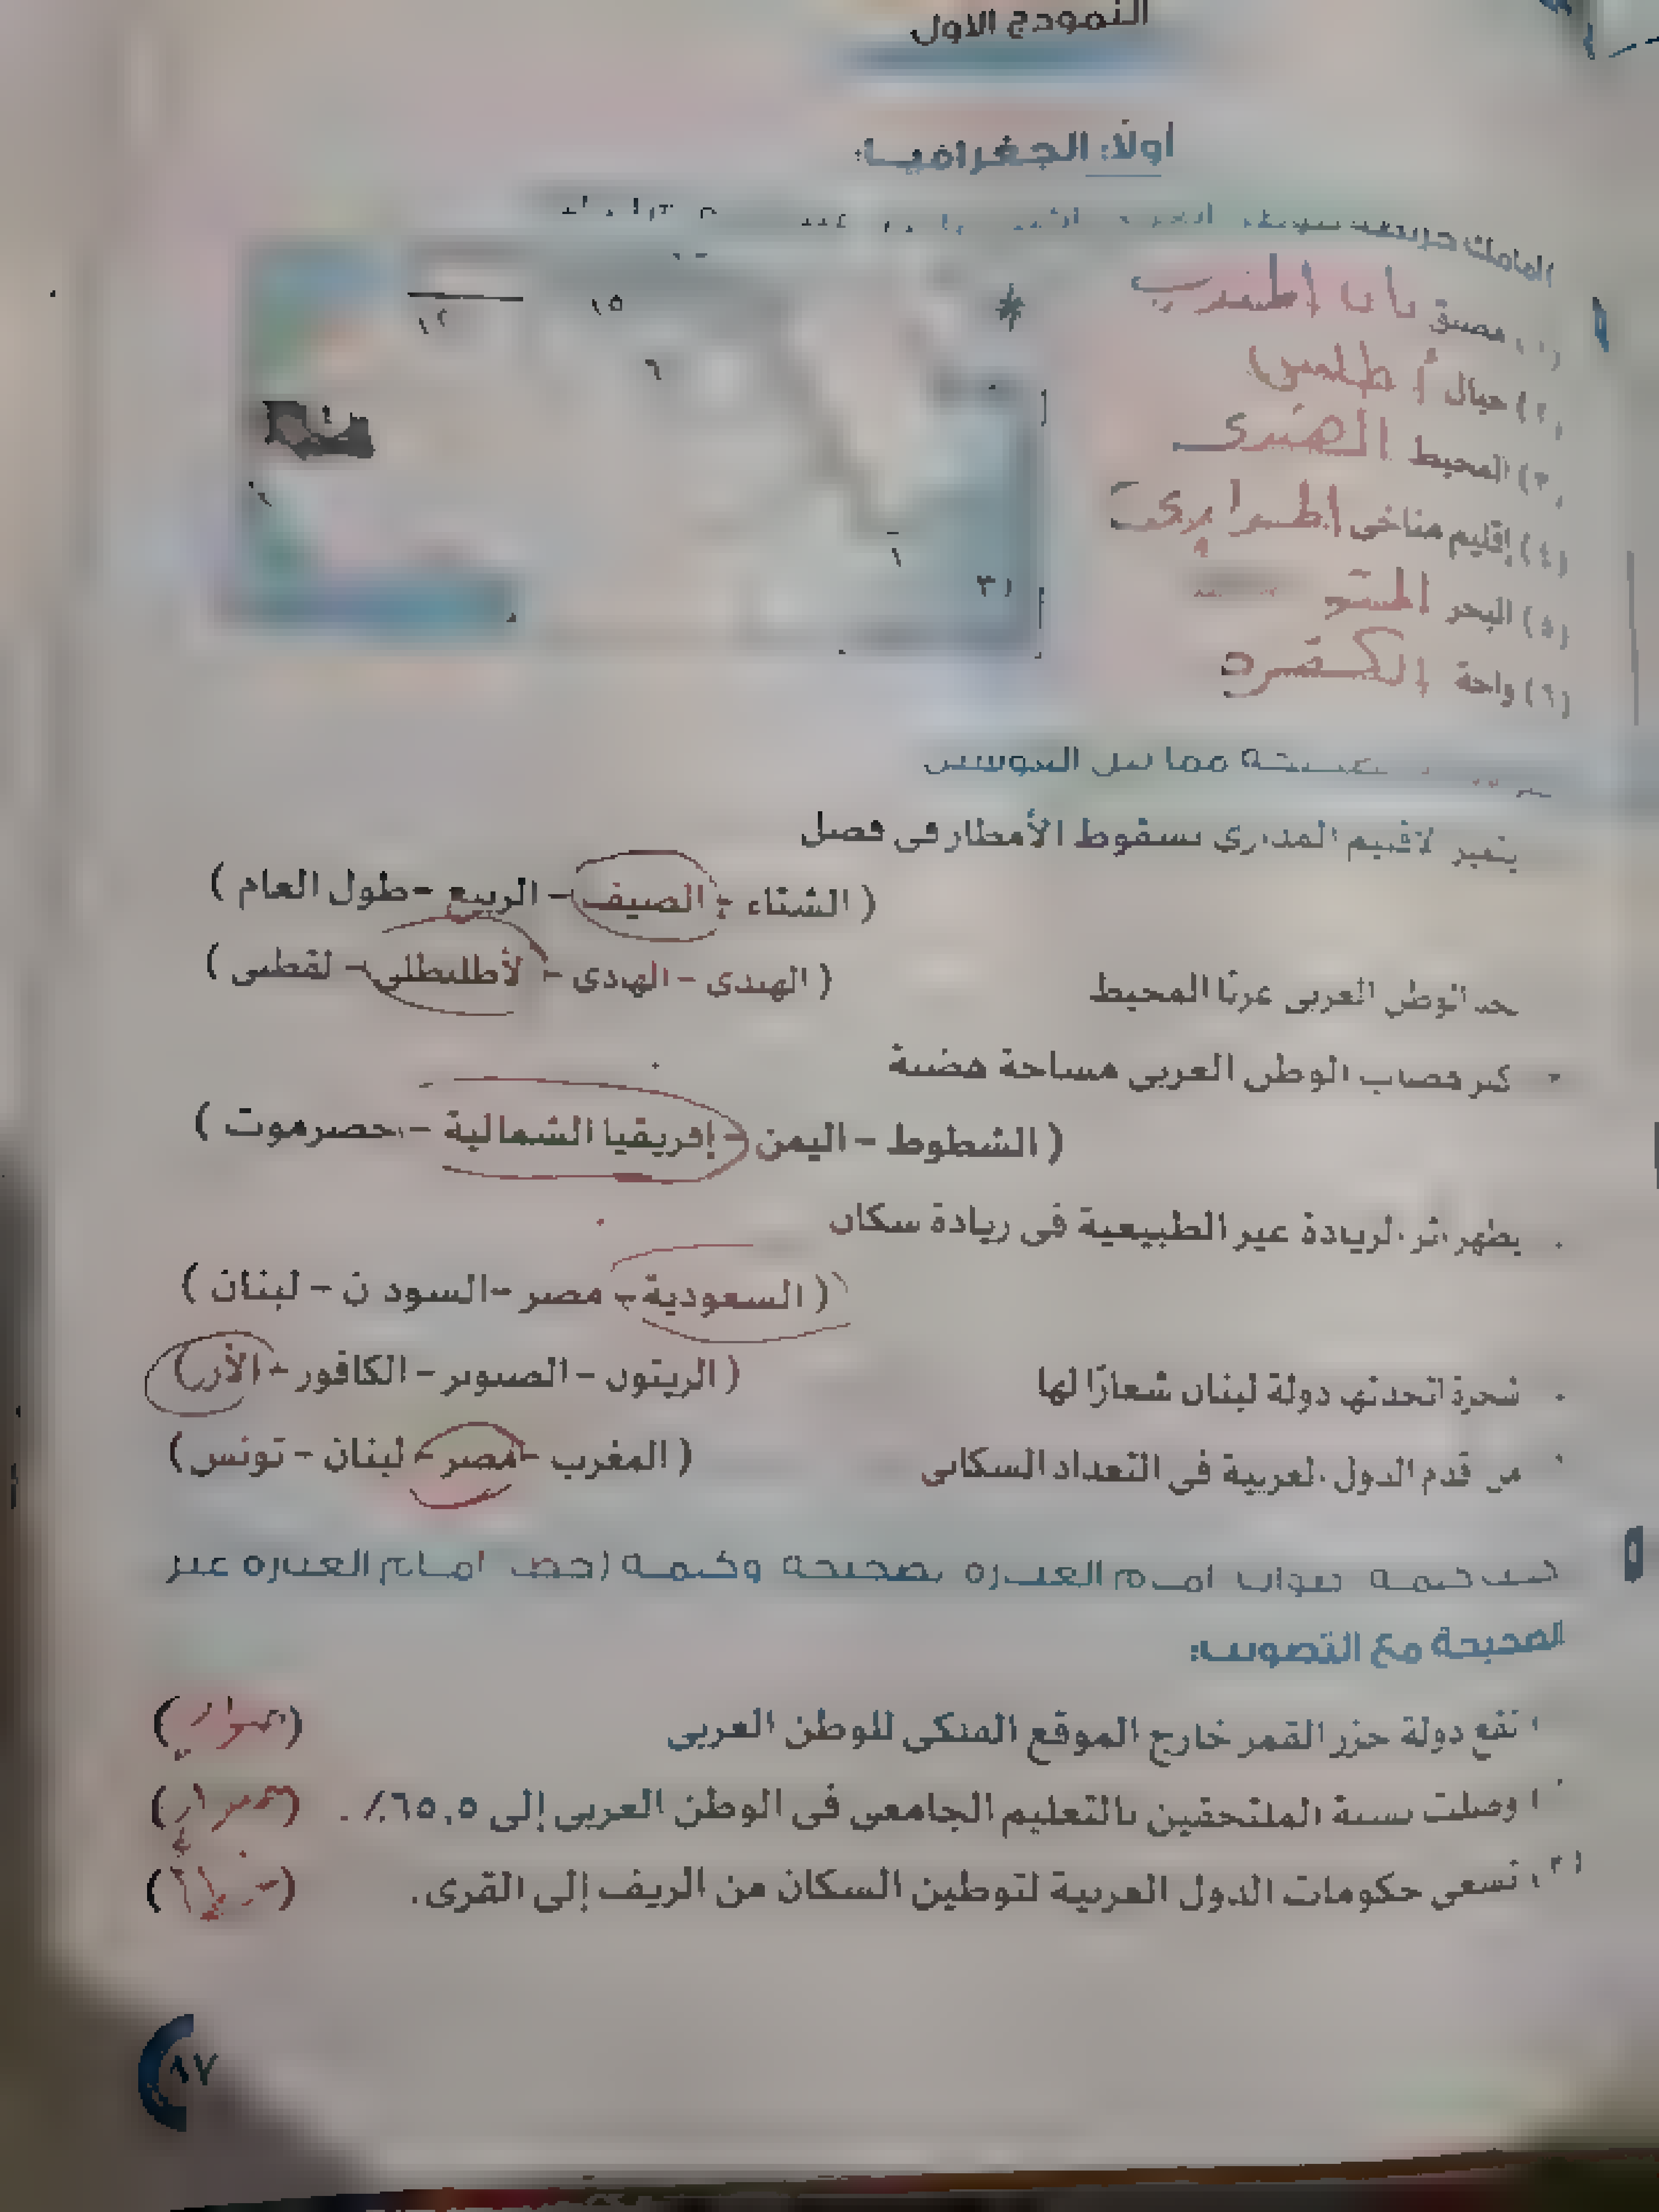 النموذج الأول
أولًا: الجغرافيا:
أمامك خريطة
(١) مضيق باب المندب
(٢) جبال أطلس
(٣) المحيط الهندى
(٤) إقليم مناخى
(٥) البحر المتو
(٦) واحة الكفره
١٢
١٥
٦
١٤
١
١٣
مما بين القوسين
يتميز الإقليم المدارى بسقوط الأمطار فى فصل
( الشتاء - الصيف - الربيع - طول العام )
يحد الوطن العربى غربًا المحيط
( الهندى - الهادى - الأطلنطى - القطبى )
أكبر هضاب الوطن العربى مساحة هضبة
( الشطوط - اليمن - إفريقيا الشمالية - حضرموت )
يظهر أثر الزيادة غير الطبيعية فى زيادة سكان
( السعودية - مصر - السودان - لبنان )
شجرة اتخذتها دولة لبنان شعارًا لها
( الزيتون - الصنوبر - الكافور - الأرز )
من أقدم الدول العربية فى التعداد السكانى
( المغرب - مصر - لبنان - تونس )
اكتب كلمة صواب أمام العبارة الصحيحة وكلمة (خطأ) أمام العبارة غير
الصحيحة مع التصويب:
تقع دولة جزر القمر خارج الموقع الفلكى للوطن العربى
وصلت نسبة الملتحقين بالتعليم الجامعى فى الوطن العربى إلى ٦٥,٥٪ .
تسعى حكومات الدول العربية لتوطين السكان من الريف إلى القرى.
٨٧